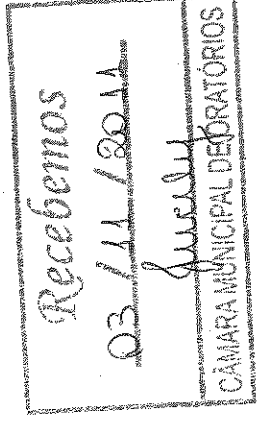 Recebemos
03/11/2011
CÂMARA MUNICIPAL DE ORATÓRIOS